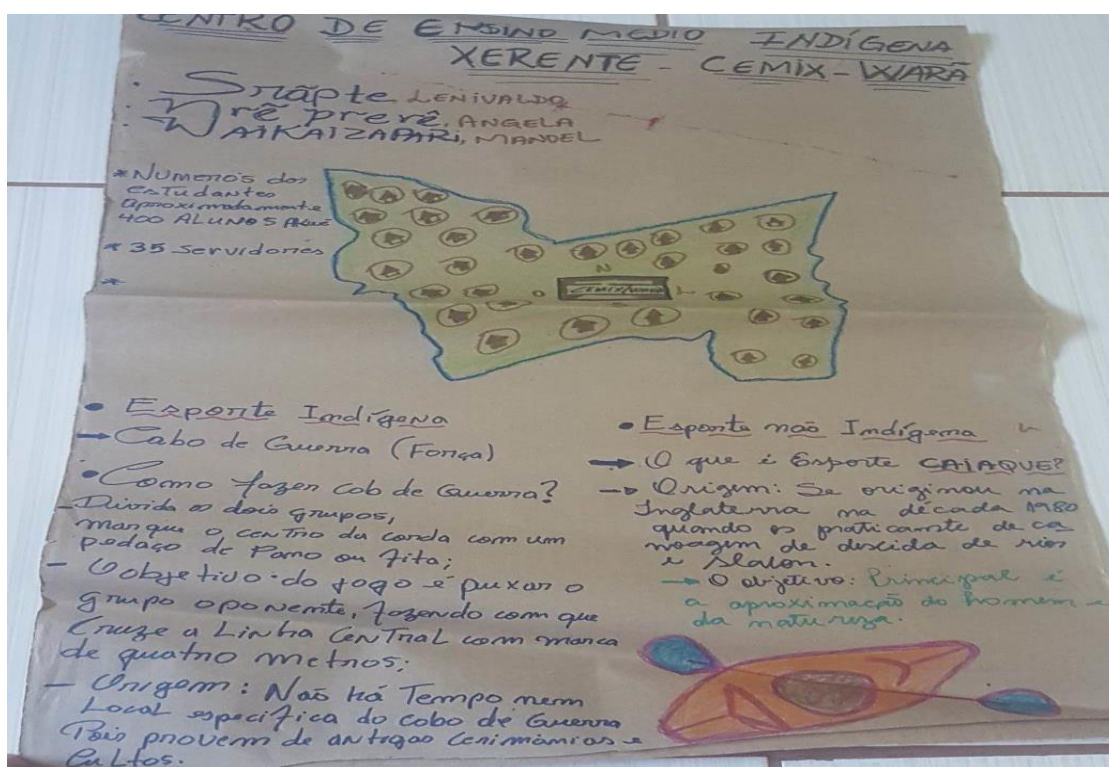 CENTRO DE ENSINO MEDIO INDÍGENA
XERENTE - CEMIX - WARÃ
Srãpte LENIVALDO
Wrê Prerê, ANGELA
WAIKAIZAPARI, MANOEL
* Numeros dos
estudantes
aproximadamente
400 ALUNOS AKWẼ
* 35 Servidores
*
N
O CEMIX/WARÃ L
• Esporte Indígena
→ Cabo de Guerra (Força)
• Como fazer cob de Guerra?
- Divida os dois grupos,
marque o centro da corda com um
pedaço de Pano ou fita;
- O objetivo do jogo é puxar o
grupo oponente, fazendo com que
Cruze a Linha Central com marca
de quatro metros;
- Origem: Não há Tempo nem
Local especifica do cabo de Guerra
Pois provem de antigas Cerimônias e
Cultos.
• Esporte não Indígena
→ O que é Esporte CAIAQUE?
→ Origem: Se originou na
Inglaterra na década 1980
quando os praticante de ca
noagem de descida de rios
e Slalon.
→ O objetivo: Principal é
a aproximação do homem e
da natureza.